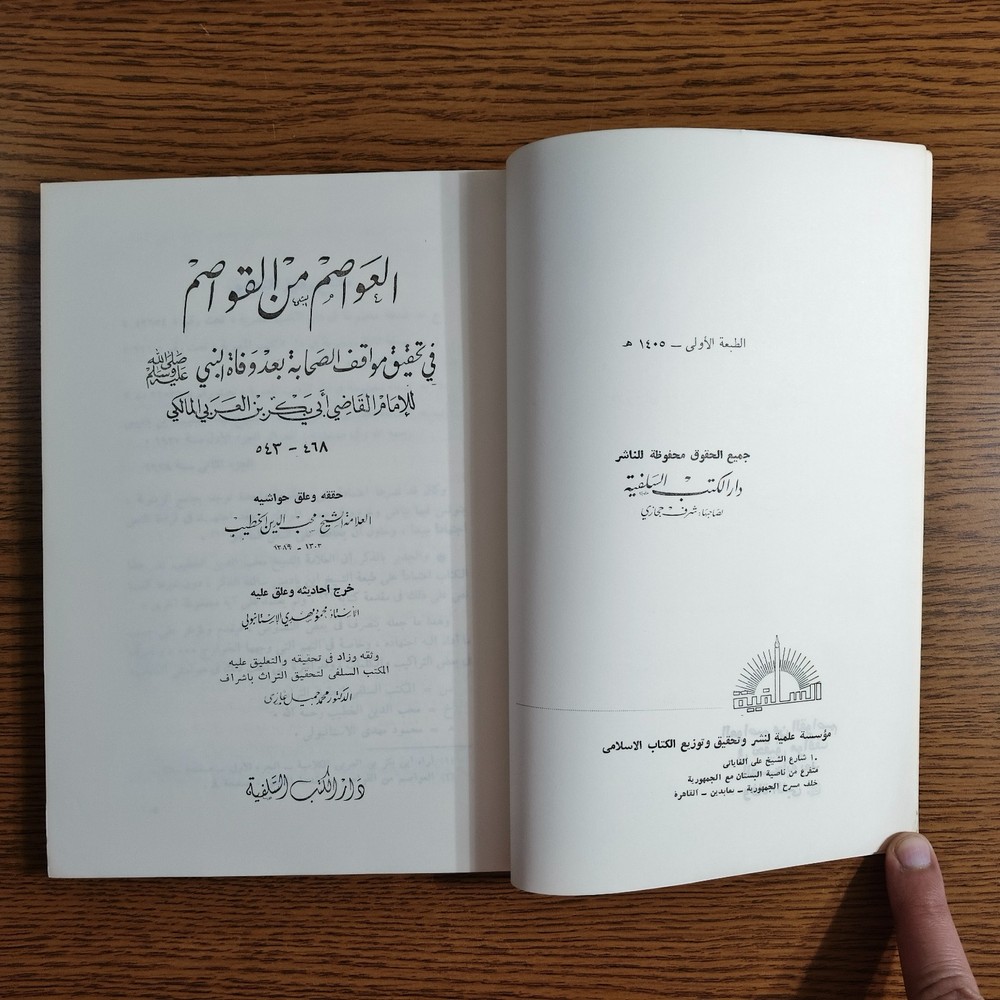 الطبعة الأولى – ١٤٠٥ هـ
جميع الحقوق محفوظة للناشر
دار الكتب السلفية
لصاحبها: شرف حجازي
السلفية
مؤسسة علمية لنشر وتحقيق وتوزيع الكتاب الاسلامى
١٠ شارع الشيخ على القاياتى
متفرع من ناصية البستان مع الجمهورية
خلف مسرح الجمهورية – عابدين – القاهرة
العواصم من القواصم
في تحقيق مواقف الصحابة بعد وفاة النبي صلى الله عليه وسلم
للإمام القاضي أبي بكر بن العربي المالكي
٤٦٨ – ٥٤٣
حققه وعلق حواشيه
العلامة الشيخ محب الدين الخطيب
١٣٠٣ – ١٣٨٩
خرج احاديثه وعلق عليه
الأستاذ محمود مهدي الإستانبولي
وثقه وزاد فى تحقيقه والتعليق عليه
المكتب السلفى لتحقيق التراث باشراف
الدكتور محمد جميل غازي
دار الكتب السلفية